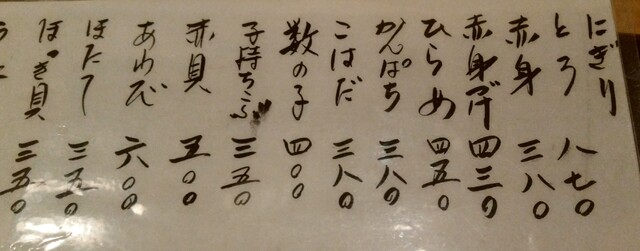 にぎり
とろ 八七〇
赤身 三八〇
赤身ヅケ 四三〇
ひらめ 四五〇
かんぱち 三八〇
こはだ 三八〇
数の子 四〇〇
子持ちこぶ 三五〇
赤貝 五〇〇
あわび 六〇〇
ほたて 三五〇
ほっき貝 三五〇